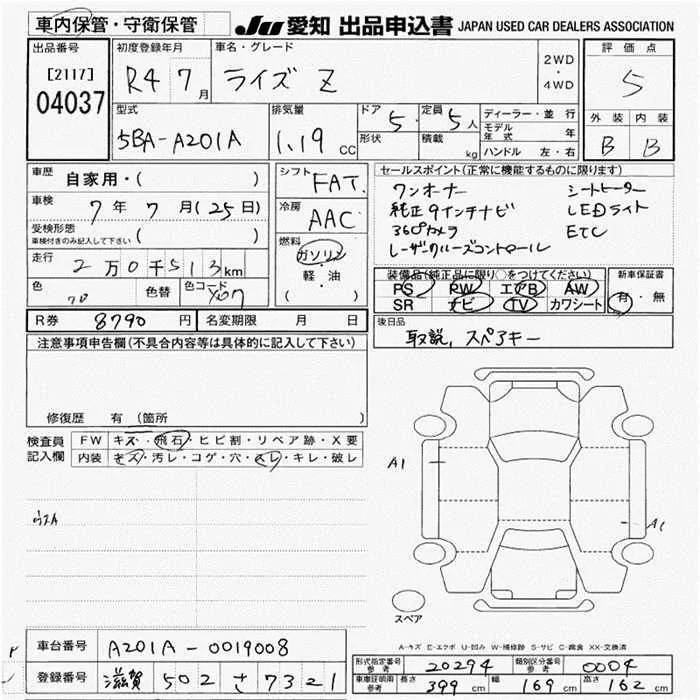 車内保管・守衛保管
JU 愛知 出品申込書 JAPAN USED CAR DEALERS ASSOCIATION
出品番号 初度登録年月 車名・グレード 2WD ・ 4WD 評価点
[2117] 04037 R4 7月 ライズ Z 5
型式 排気量 ドア 5 定員 5人 ディーラー・並行 外装 内装
5BA-A201A 1.19 CC 形状 積載 kg モデル年式 年 B B
ハンドル 左・右
車歴 自家用・( ) シフト FAT セールスポイント(正常に機能するものに限ります)
車検 7年7月(25日) 冷房 AAC
受検形態 車検付きのみ記入して下さい ( ) 燃料 ガソリン・軽・油 ( )
ワンオーナー シートヒーター
純正9インチナビ LEDライト
360°カメラ ETC
レーザークルーズコントロール
走行 2万0千513km
装備品(純正品に限り○をつけてください) 新車保証書
PS PW エアB AW 有・無
SR ナビ TV カワシート
色 色替 色コード X07
R券 8790円 名変期限 月 日
後日品 取説, スペアキー
注意事項申告欄(不具合内容等は具体的に記入して下さい)
修復歴 有 (箇所 )
検査員記入欄 FW キズ・飛石・ヒビ割・リペア跡・X要
内装 キズ・汚レ・コゲ・穴・スレ・キレ・破レ
A1
A1
スペア
A-キズ E-エクボ U-凹み W-補修跡 S-サビ C-腐食 XX-交換済
車台番号 A201A-0019008
形式指定番号 参考 20294 類別区分番号 参考 0004
登録番号 滋賀 502 さ 7321
車庫証明用 参考 長さ 399 cm 幅 169 cm 高さ 162 cm